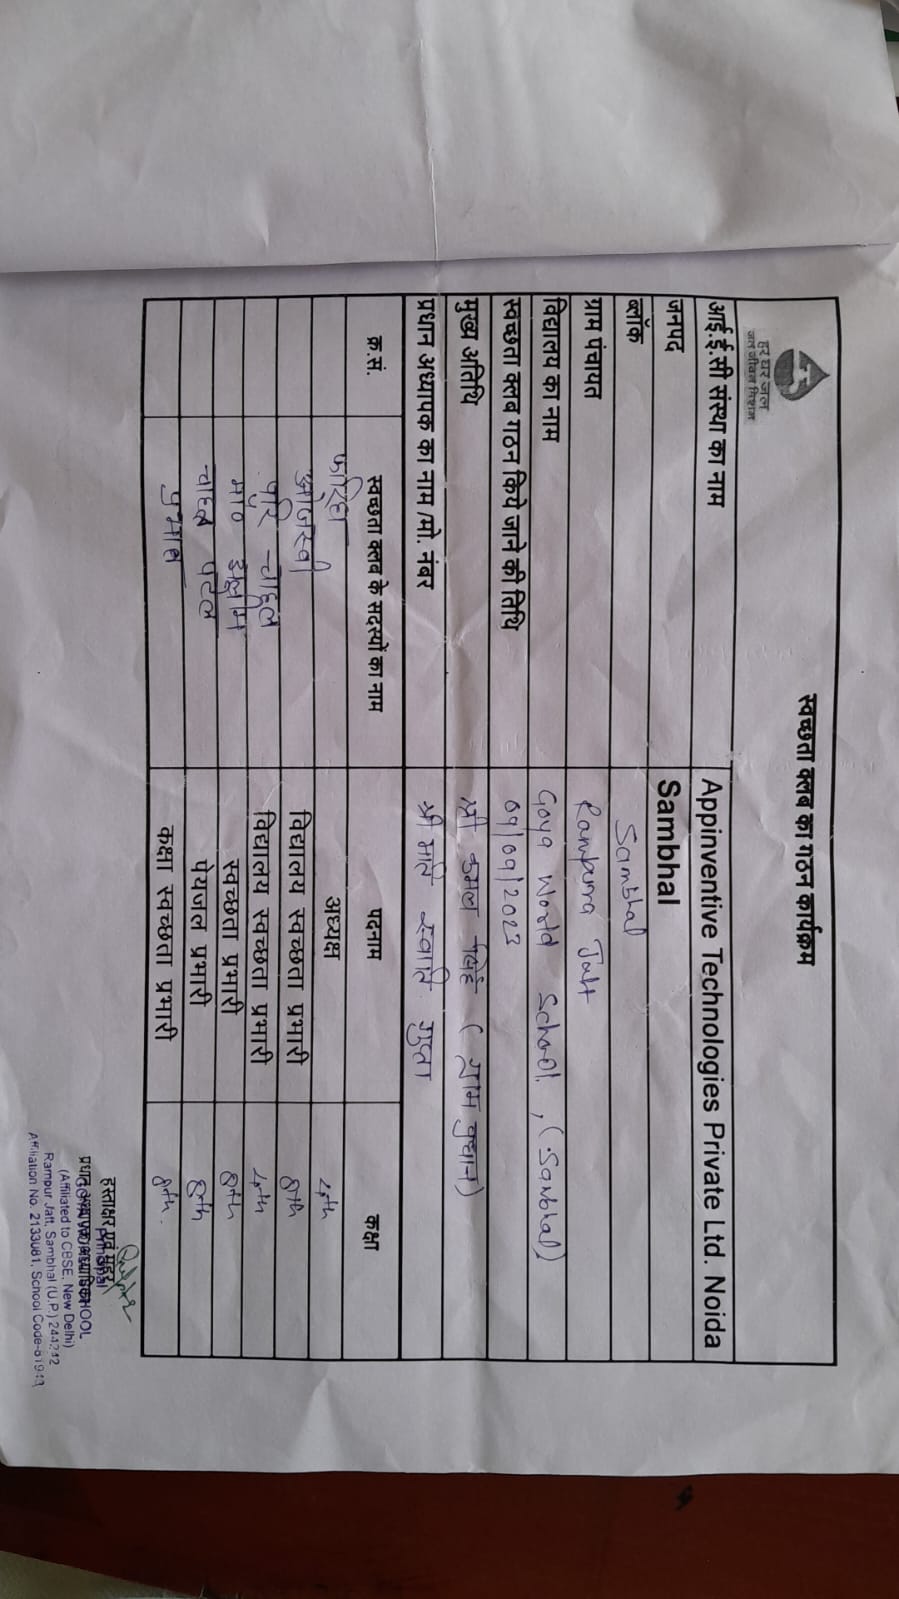 हर घर जल
जल जीवन मिशन
स्वच्छता क्लब का गठन कार्यक्रम
आई.ई.सी संस्था का नाम Appinventive Technologies Private Ltd. Noida
जनपद Sambhal
ब्लॉक Sambhal
ग्राम पंचायत Rampura Jatt
विद्यालय का नाम Goya World School, (Sambhal)
स्वच्छता क्लब गठन किये जाने की तिथि 09/09/2023
मुख्य अतिथि श्री कमल सिंह (ग्राम प्रधान)
प्रधान अध्यापक का नाम /मो. नंबर श्री मति स्वाति गुप्ता
क्र.सं. स्वच्छता क्लब के सदस्यों का नाम पदनाम कक्षा
अध्यक्ष
ओजस्वी विद्यालय स्वच्छता प्रभारी 8th
परि विद्यालय स्वच्छता प्रभारी
मो० स्वच्छता प्रभारी 8th
पटेल पेयजल प्रभारी 8th
कक्षा स्वच्छता प्रभारी 8th.
हस्ताक्षर एवं मुहर
Principal
SCHOOL
(Affiliated to CBSE, New Delhi)
Rampur Jatt, Sambhal (U.P.) 244242
Affiliation No. 2133081, School Code-